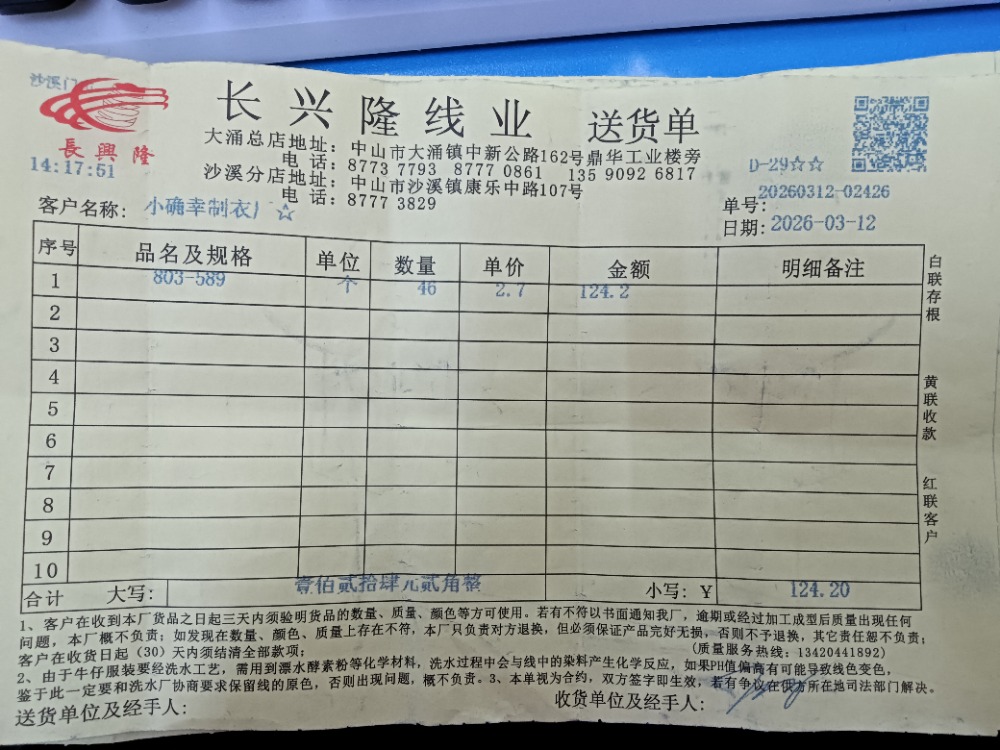 沙溪门
長興隆
14:17:51
长兴隆线业 送货单
大涌总店地址：中山市大涌镇中新公路162号鼎华工业楼旁
电话：8773 7793 8777 0861 135 9092 6817
沙溪分店地址：中山市沙溪镇康乐中路107号
电话：8777 3829
D-29☆☆
单号：20260312-02426
客户名称：小确幸制衣厂☆
日期：2026-03-12
序号 品名及规格 单位 数量 单价 金额 明细备注
1 803-589 个 46 2.7 124.2
2
3
4
5
6
7
8
9
10
合计 大写：壹佰贰拾肆元贰角整 小写：￥ 124.20
白联存根
黄联收款
红联客户
1、客户在收到本厂货品之日起三天内须验明货品的数量、质量、颜色等方可使用。若有不符以书面通知我厂，逾期或经过加工成型后质量出现任何
问题，本厂概不负责；如发现在数量、颜色、质量上存在不符，本厂只负责对方退换，但必须保证产品完好无损，否则不予退换，其它责任恕不负责；
客户在收货日起（30）天内须结清全部款项； （质量服务热线：13420441892）
2、由于牛仔服装要经洗水工艺，需用到漂水酵素粉等化学材料，洗水过程中会与线中的染料产生化学反应，如果PH值偏高有可能导致线色变色，
鉴于此一定要和洗水厂协商要求保留线的原色，否则出现问题，概不负责。3、本单视为合约，双方签字即生效，若有争议在供方所在地司法部门解决。
送货单位及经手人： 收货单位及经手人：